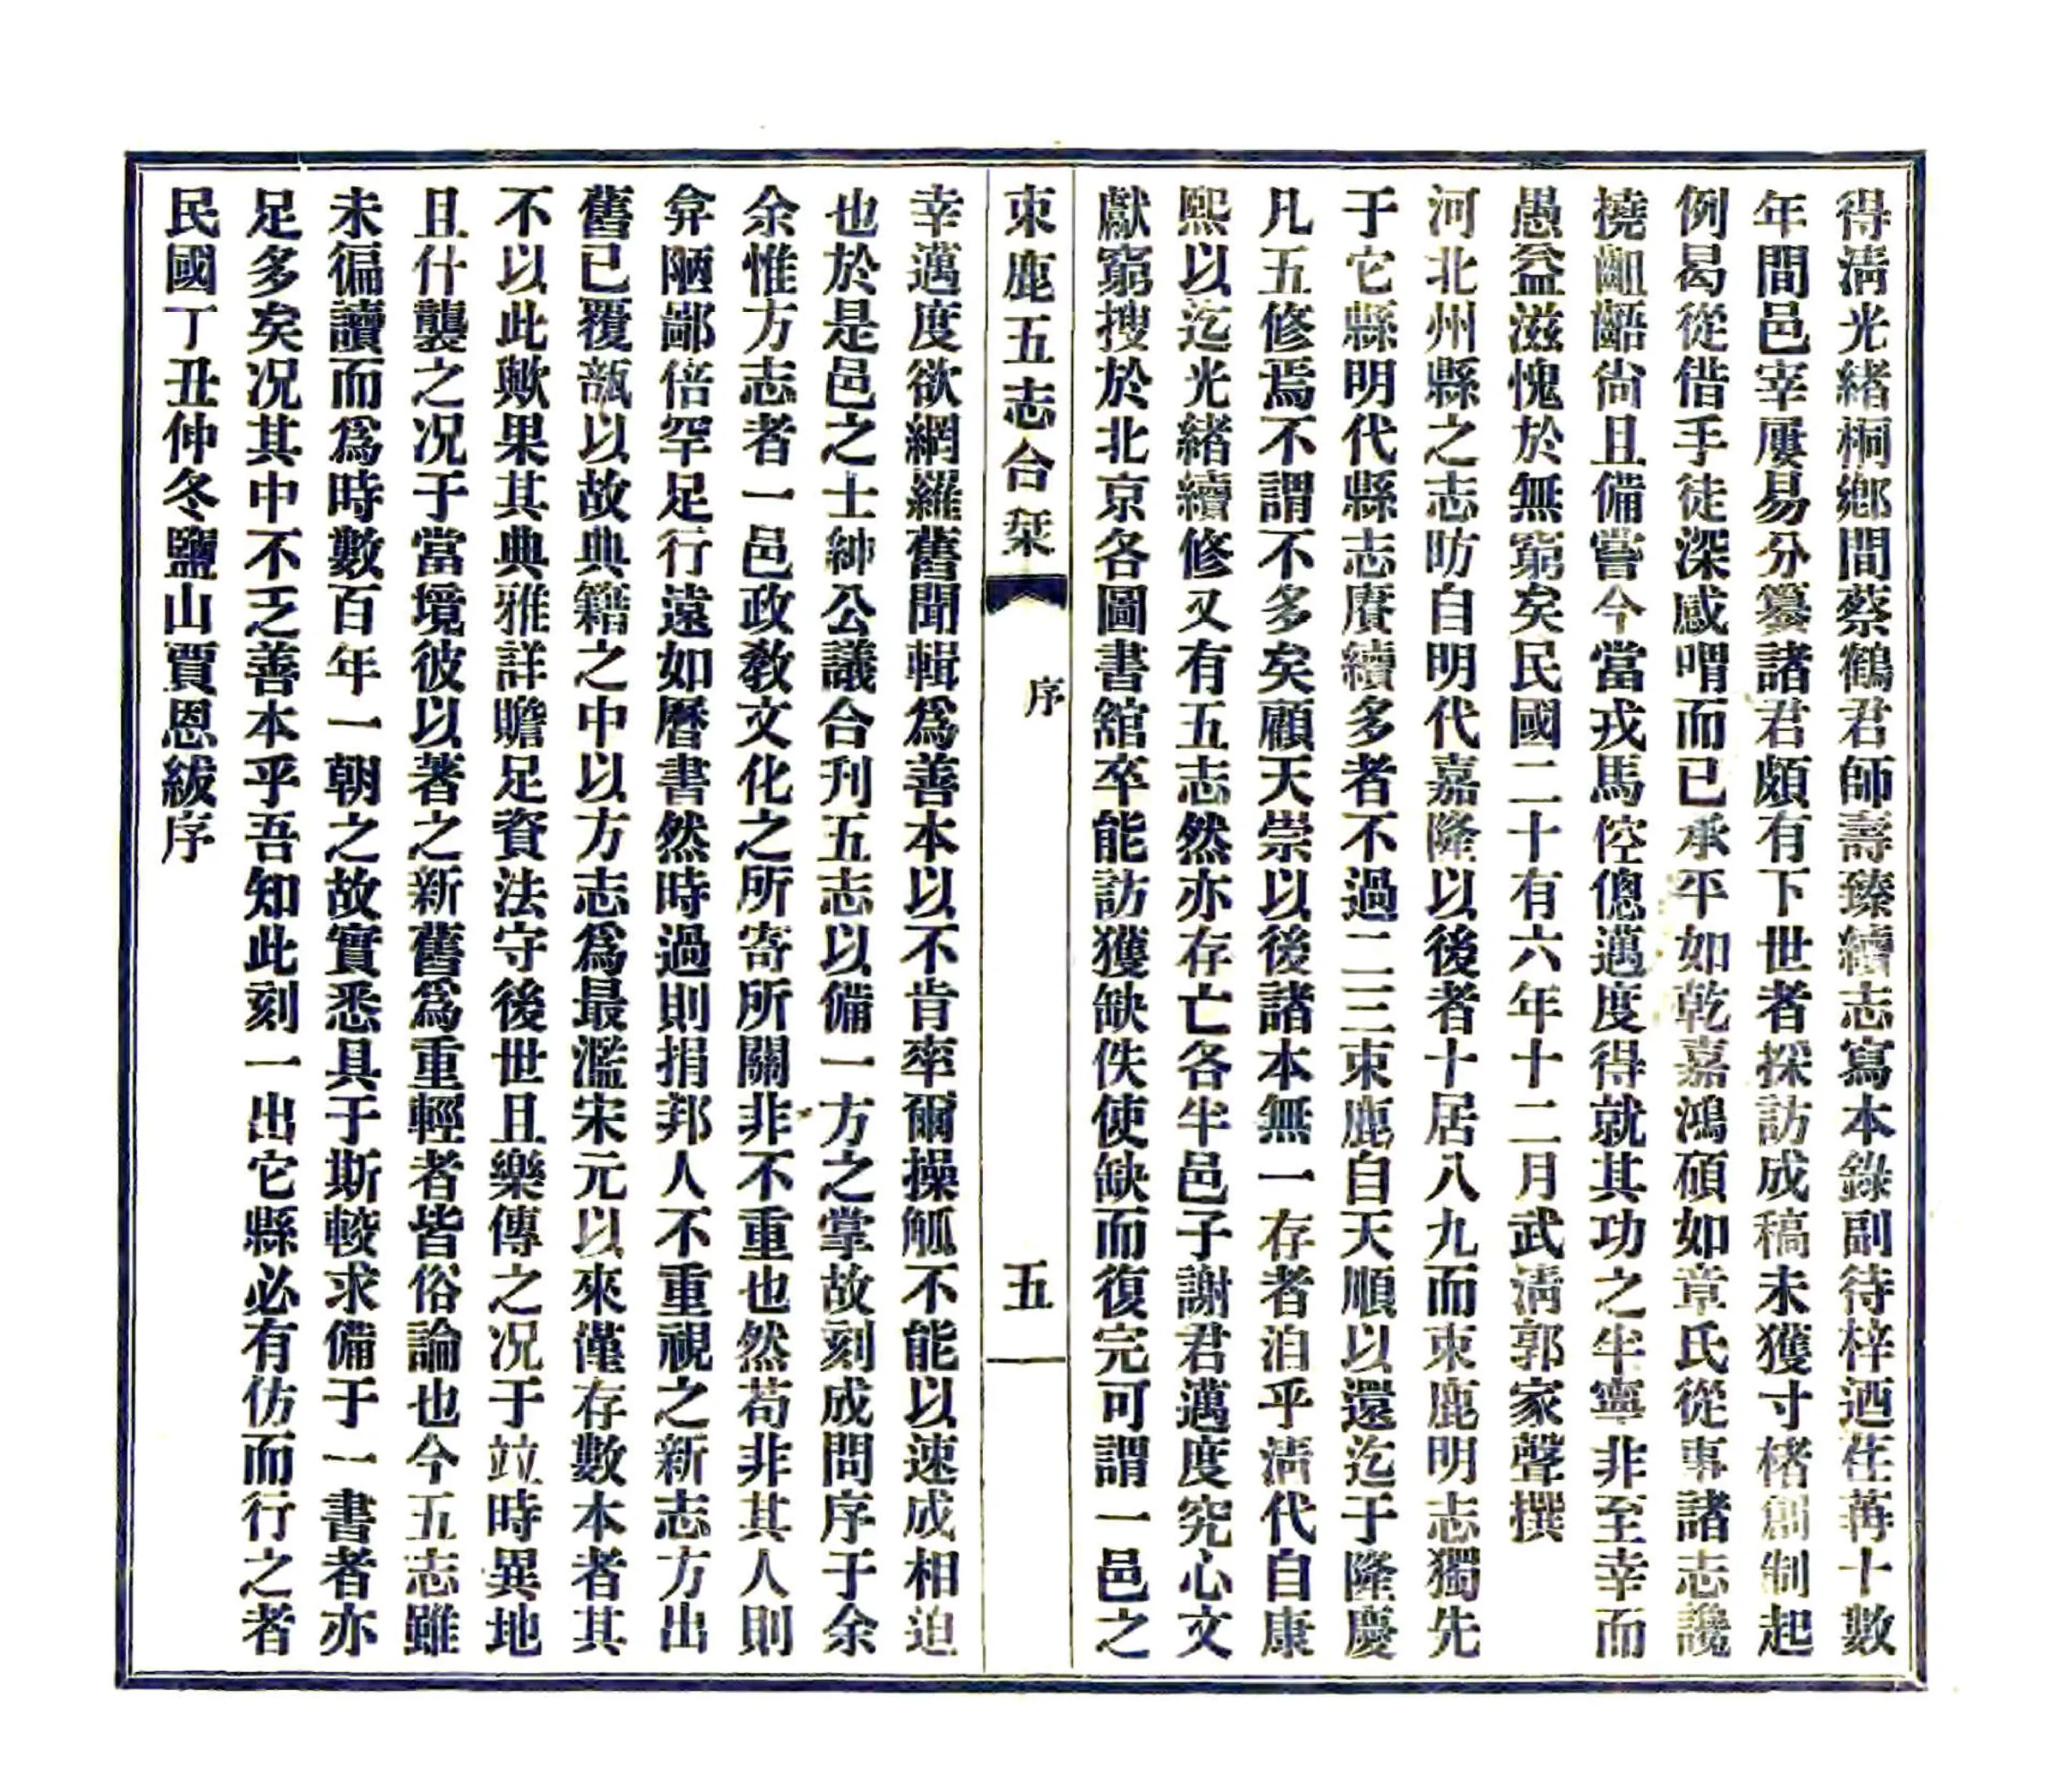 得清光緒桐鄉間蔡鶴君師壽臻續志寫本錄副待梓迺荏苒十數
年間邑宰屢易分纂諸君頗有下世者採訪成稿未獲寸楮創制起
例曷從借手徒深感喟而已承平如乾嘉鴻碩如章氏從事諸志讒
撓齟齬尙且備嘗今當戎馬倥傯邁度得就其功之半寧非至幸而
愚益滋愧於無窮矣民國二十有六年十二月武淸郭家聲撰
河北州縣之志昉自明代嘉隆以後者十居八九而束鹿明志獨先
于它縣明代縣志賡續多者不過二三束鹿自天順以還迄于隆慶
凡五修焉不謂不多矣顧天崇以後諸本無一存者洎乎淸代自康
熙以迄光緒續修又有五志然亦存亡各半邑子謝君邁度究心文
獻窮搜於北京各圖書舘卒能訪獲缺佚使缺而復完可謂一邑之
束鹿五志合栞
序
五
幸邁度欲網羅舊聞輯爲善本以不肯率爾操觚不能以速成相迫
也於是邑之士紳公議合刊五志以備一方之掌故刻成問序于余
余惟方志者一邑政教文化之所寄所關非不重也然苟非其人則
弇陋鄙倍罕足行遠如曆書然時過則捐邦人不重視之新志方出
舊已覆瓿以故典籍之中以方志爲最濫宋元以來僅存數本者其
不以此歟果其典雅詳贍足資法守後世且樂傳之况于竝時異地
且什襲之况于當境彼以著之新舊爲重輕者皆俗論也今五志雖
未徧讀而爲時數百年一朝之故實悉具于斯較求備于一書者亦
足多矣况其中不乏善本乎吾知此刻一出它縣必有仿而行之者
民國丁丑仲冬鹽山賈恩紱序